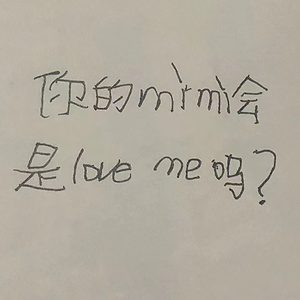 你的mimi会
是love me吗?